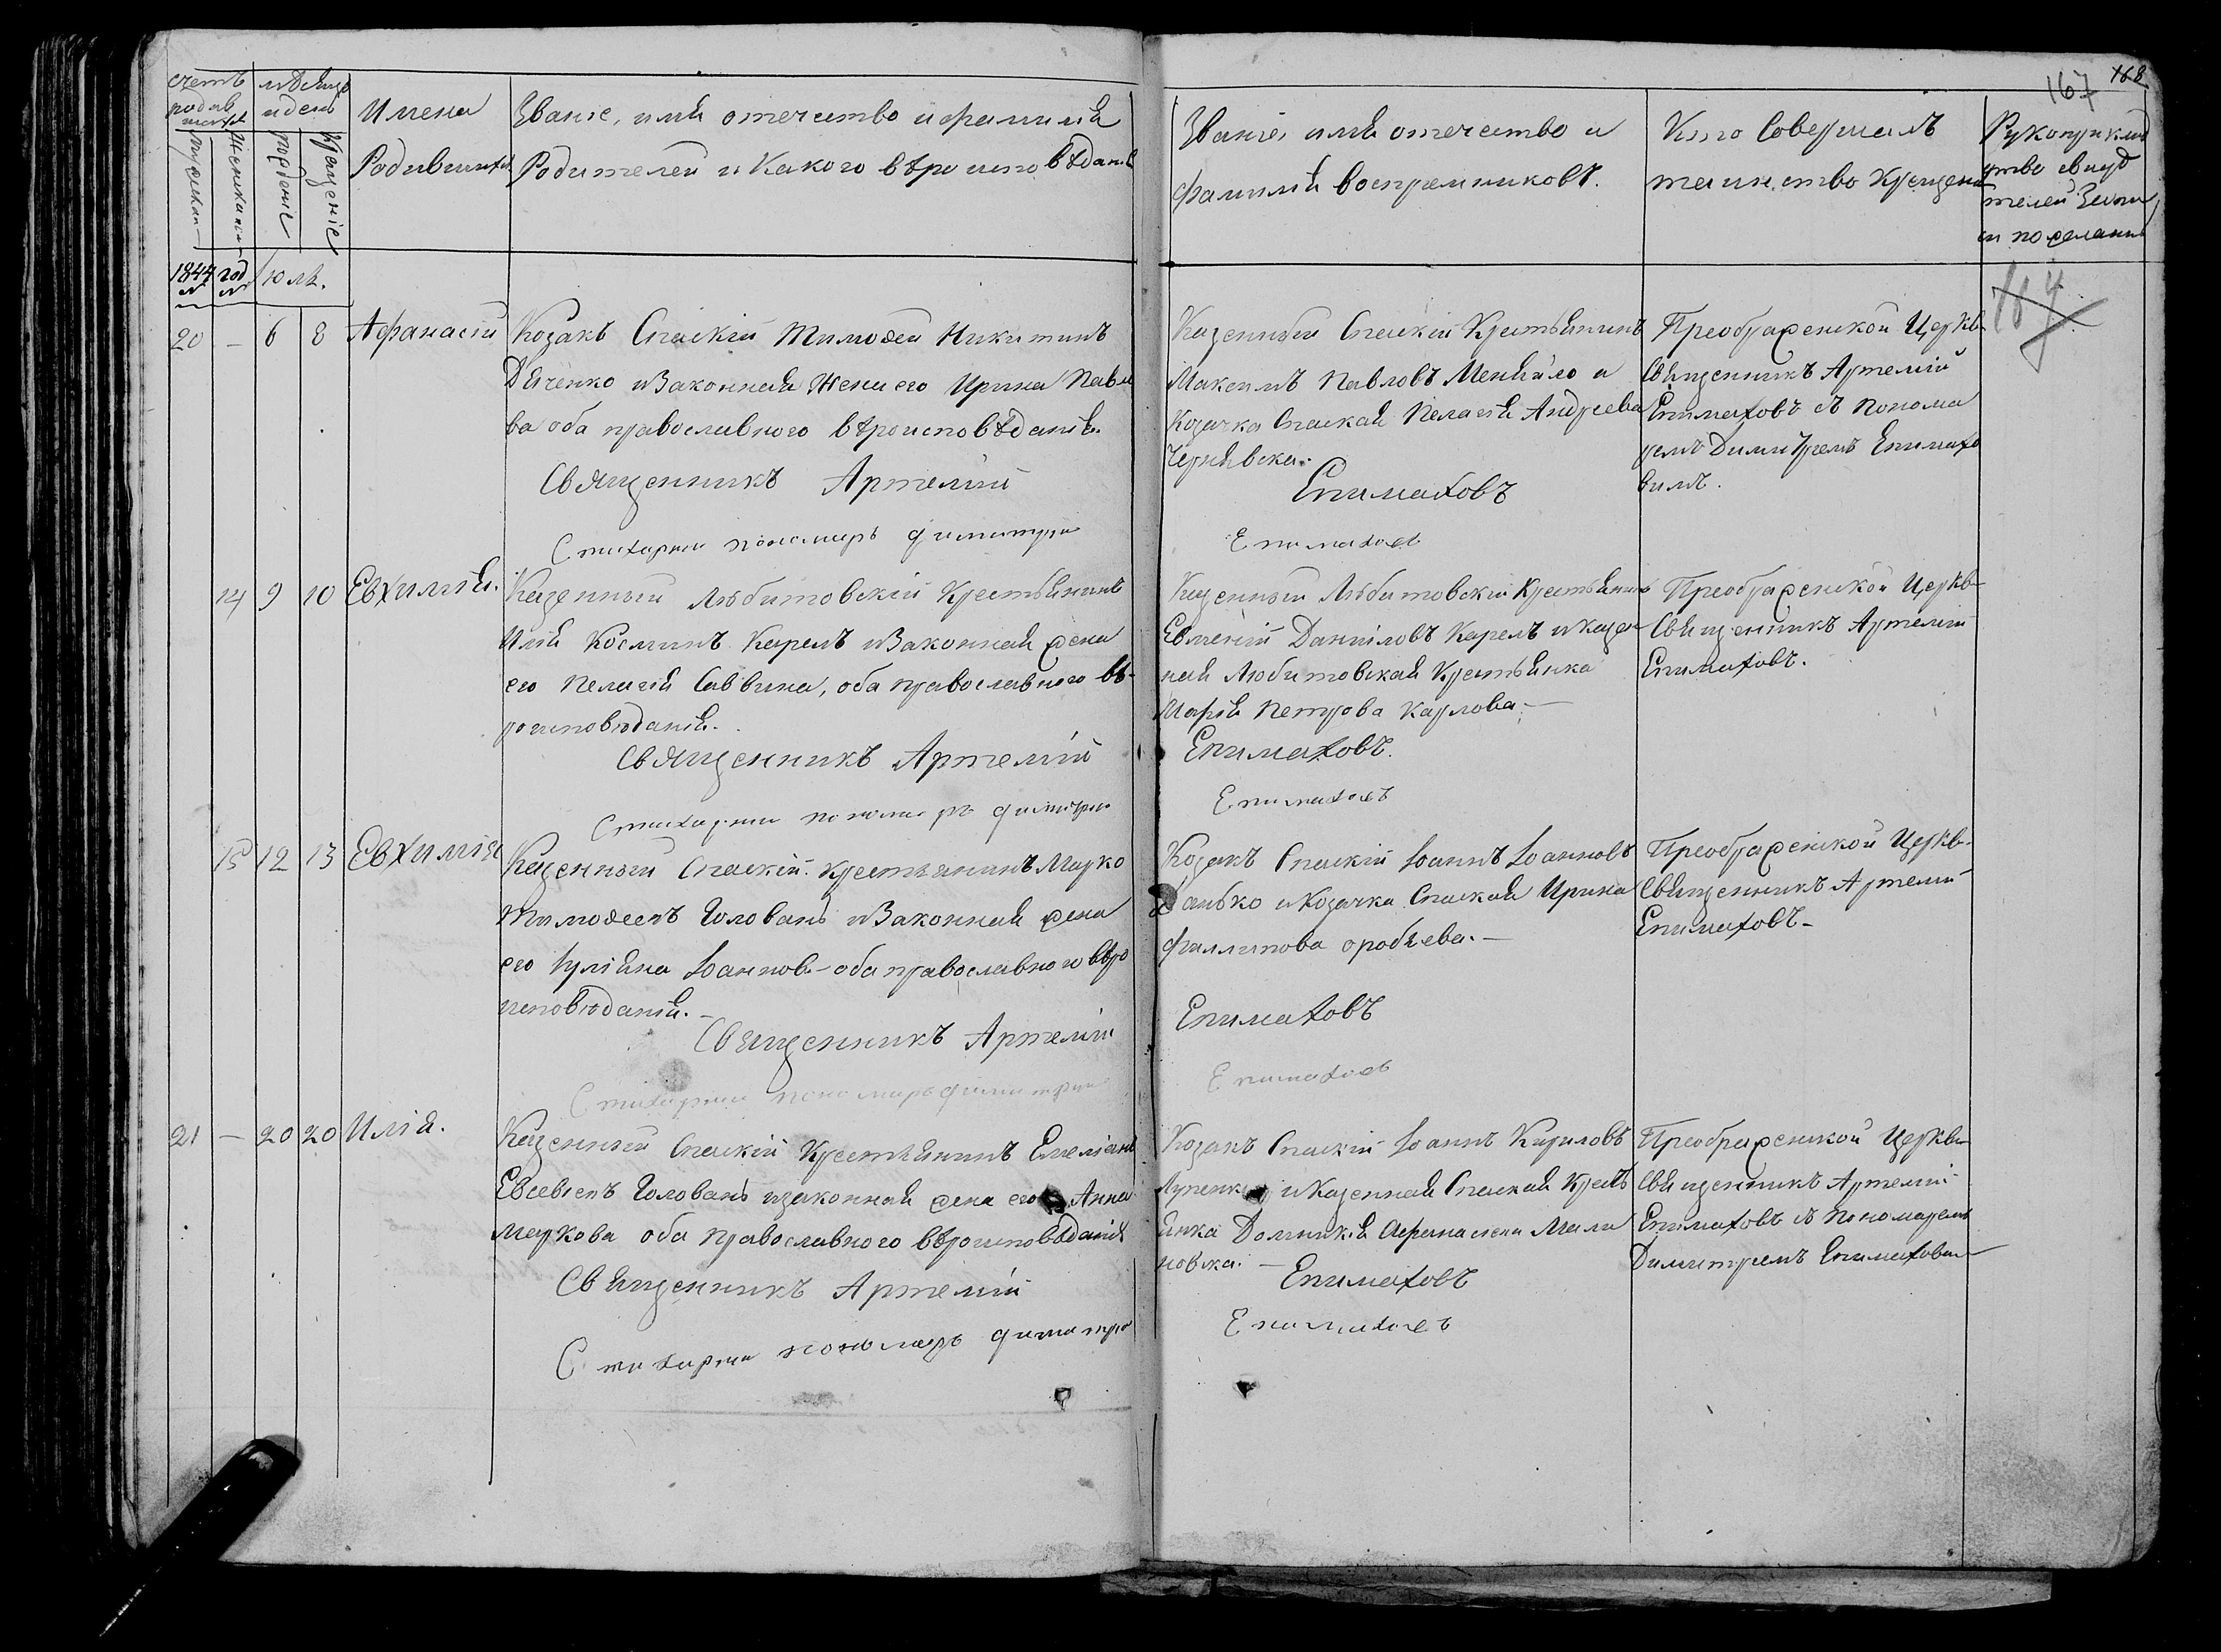 счетъ
родив
шихся
мужеска
женска
мѣсяцъ
и день
рожденіе
крещеніе
Имена
Родившихся
Званіе, имя отечество и фамилія
Родителей и Какого вѣроисповѣданія
Званіе, имя отечество и
фамилія воспремниковъ.
Кто Совершалъ
таинство Крещенія
Рукоприклад
ство свидѣ
телей Записи
по желанію
167 168
1844 год
Іюль.
20 — 6 8 Афанасій
Козакъ Спаскій Тимоѳей Никитинъ
Дяченко и Законная Жена его Ирина Павло
ва оба православного вѣроисповѣданія.
Священникъ Артемій
Стихарный пономарь Димитрій
Казенный Спаскій Крестьянинъ
Максимъ Павловъ Менжило и
Козачка Спаская Пелагія Андреева
Чернявска.
Епимаховъ
Епимаховъ
Преображенской Церкви
Священникъ Артемій
Епимаховъ съ Понома
ремъ Димитріемъ Епимахо
вимъ.
14 9 10 Евхимія.
Казенный Любитовскій Крестьянинъ
Илія Космінъ Карелъ и Законная жена
его Пелагія Саввина, оба православного вѣ-
роисповѣданія.
Священникъ Артемій
Стихарный пономарь Димитрій
Казенный Любитовскій Крестьянинъ
Евменій Даниловъ Карелъ и казен
ная Любитовская Крестьянка
Марія Петрова Карлова. —
Епимаховъ.
Епимаховъ
Преображенской Церкви
Священникъ Артемій
Епимаховъ.
15 12 13 Евхимія
Казенный Спаскій Крестьянинъ Марко
Тимоѳеевъ Головань и Законная жена
его Іуліяна Іоаннов- оба православного вѣро
исповѣданія. —
Священникъ Артемій
Стихарный пономарь Димитрій
Козакъ Спаскій Іоаннъ Іоанновъ
и Козачка Спаская Ирина
Филлипова оробьева. —
Епимаховъ
Епимаховъ
Преображенской Церкви
Священникъ Артемій
Епимаховъ -
21 — 20 20 Илія.
Казенный Спаскій Крестьянинъ Емеліянъ
Евсевіевъ Головань и законная жена его Анна
Маркова оба православного вѣроисповѣданія
Священникъ Артемій
Стихарный пономарь Димитрій
Козакъ Спаскій Іоаннъ Кириловъ
и Казенная Спаская Крестъ
янка Домникія Афанасіева Мали
новска. —
Епимаховъ
Епимаховъ
Преображенской Церкви
Священникъ Артемій
Епимаховъ съ Пономаремъ
Димитріемъ Епимаховим